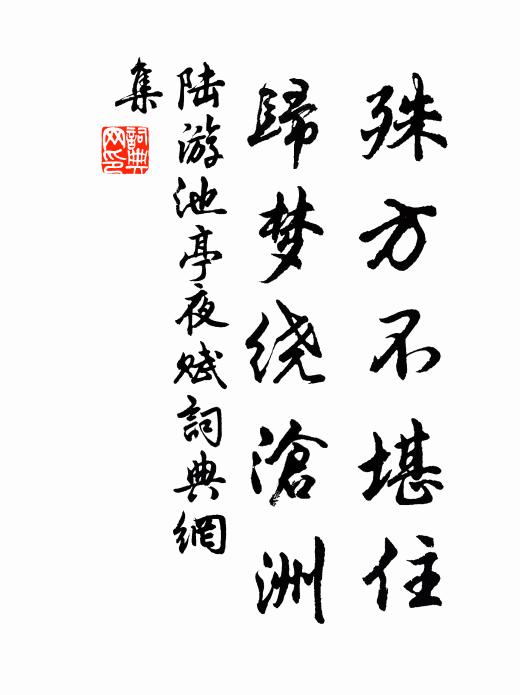 殊方不堪住
歸梦绕滄洲
陆游池亭夜赋詞典網
集
詞典
网印